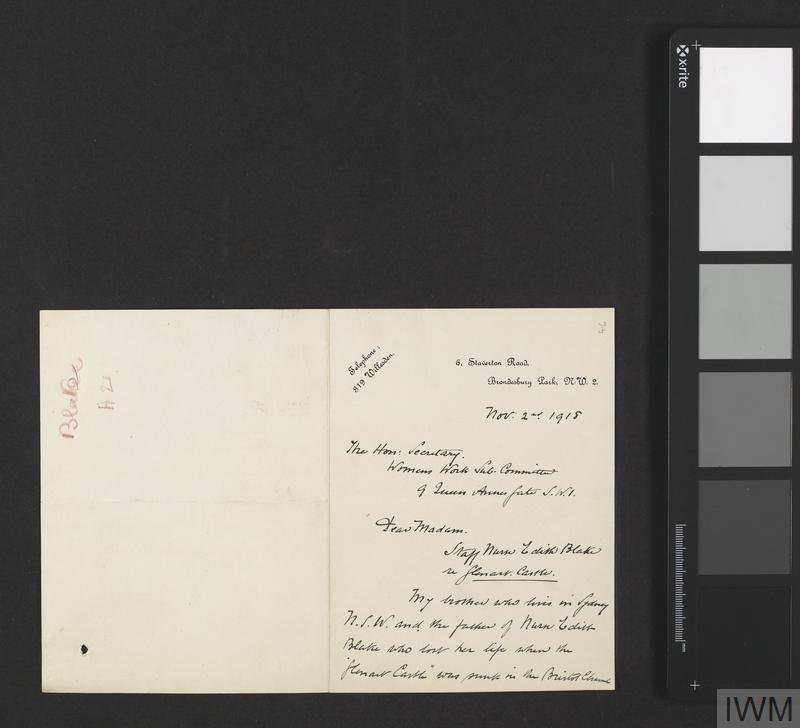 Blake
A 21
74
Telephone:
819 Willesden.
6, Staverton Road,
Brondesbury Park, N.W. 2.
Nov. 2nd. 1918
The Hon: Secretary.
Womens Work Sub-Committee
9 Queen Annes Gate S.W.1.
Dear Madam.
Staff Nurse Edith Blake
re Glenart Castle.
My brother who lives in Sydney
N.S.W. and the father of Nurse Edith
Blake who lost her life when the
"Glenart Castle" was sunk in the Bristol Channel
x-rite
mm
IWM